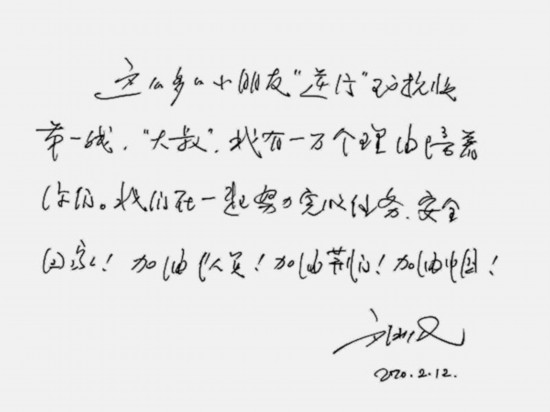 这么多小朋友“逆行”到抗疫
第一线，“大叔”，我有一万个理由陪着
你们。我们在一起努力完成任务、安全
回家！加油！加油荆门！加油中国！
2020.2.12.